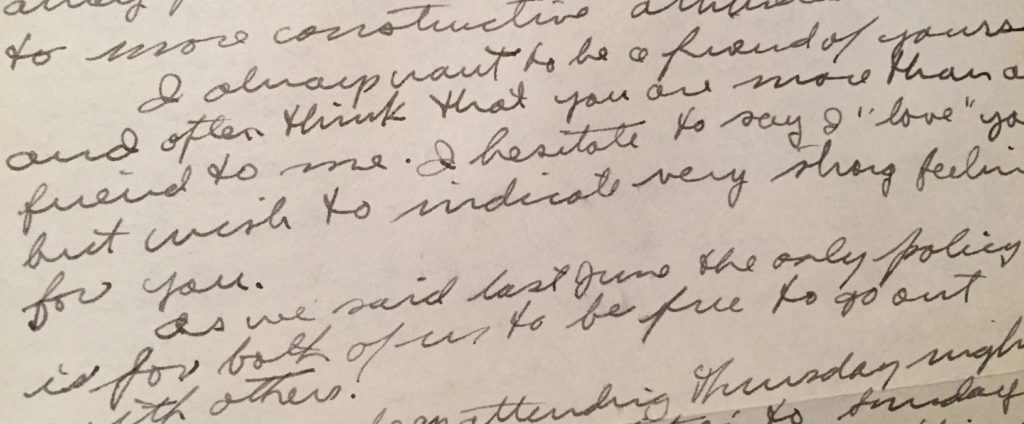 to more constructive
I always want to be a friend of yours
and often think that you are more than a
friend to me. I hesitate to say I "love" yo
but wish to indicate very strong feelin
for you.
As we said last June the only policy
is for both of us to be free to go out
ith others.
attending Thursday nigh
to Sunday